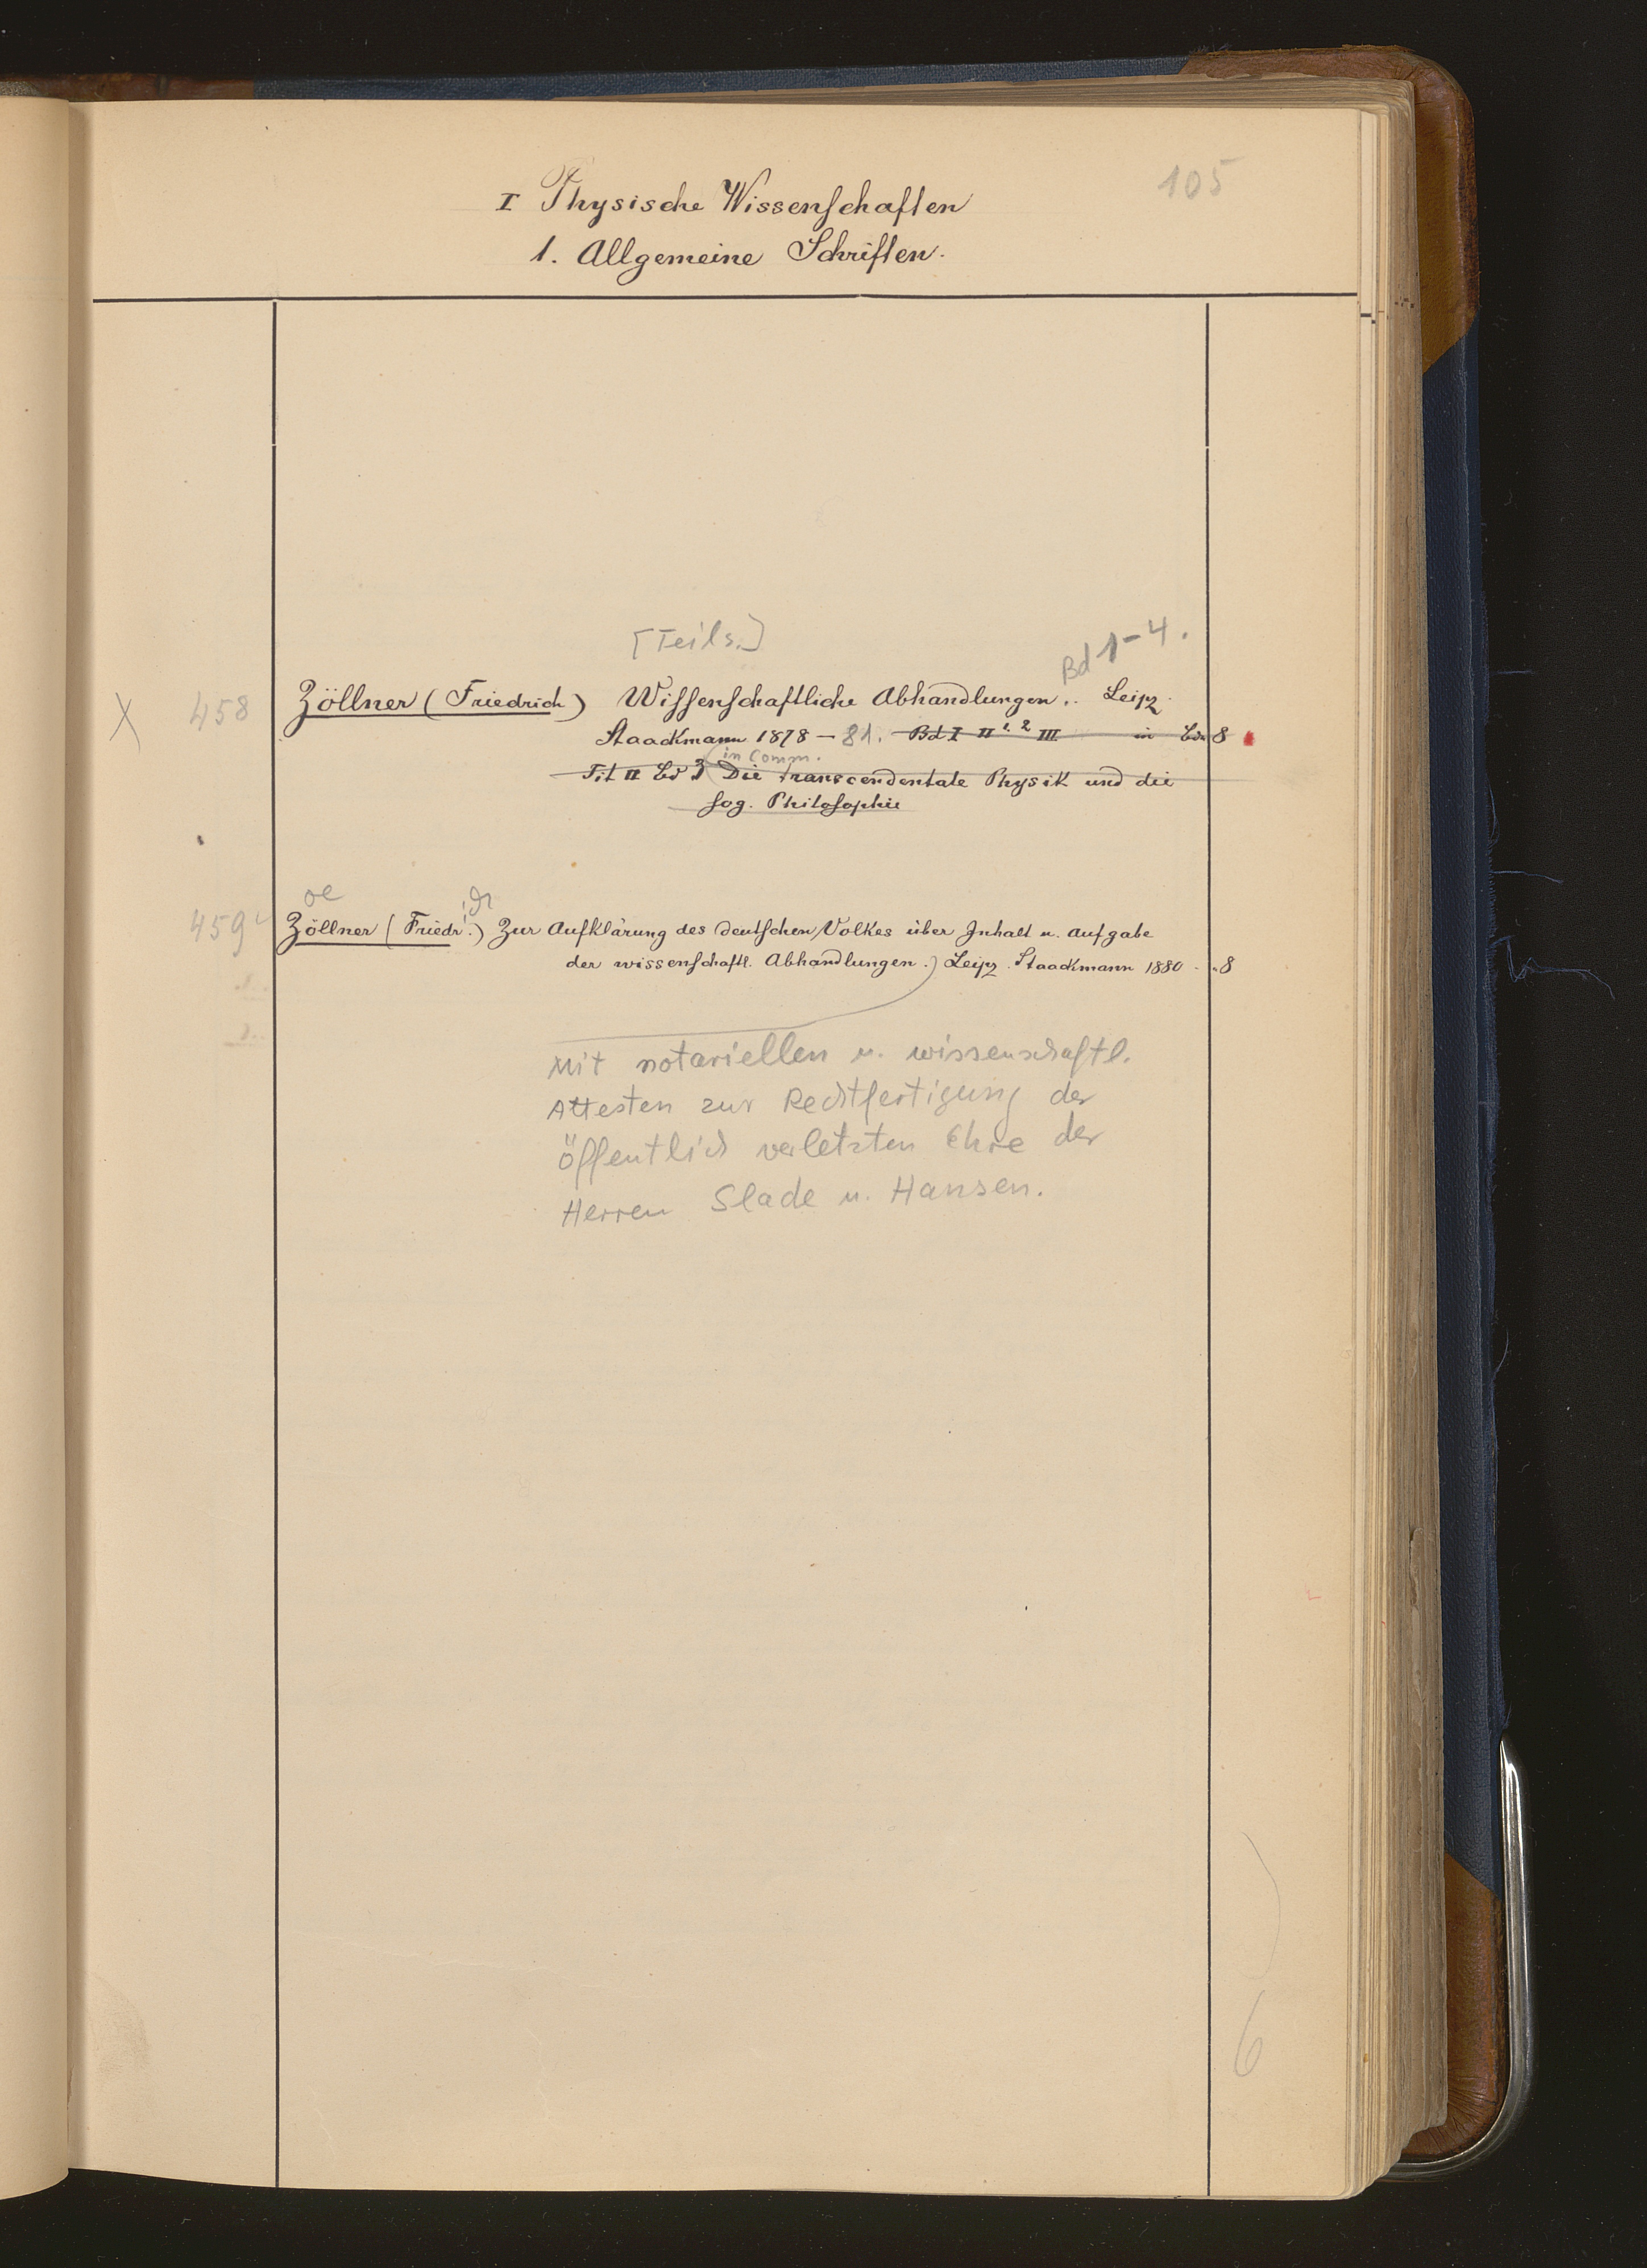 105
I Physische Wissenſchaften
1. Allgemeine Schriften.
[Teils.]
Bd 1-4.
X 458 Zöllner (Friedrich) Wiſſenſchaftliche Abhandlungen. Leipz.
Staackmann 1878 - 81. Bd I II 1. 2 III in 8
in Comm.
Tit II Bd 3 Die transcendentale Physik und die
ſog. Philoſophie
oe ich
459 Zöllner (Friedr.) Zur Aufklärung des deutſchen Volkes über Inhalt u. Aufgabe
der wissenſchaftl. Abhandlungen.) Leipz. Staackmann 1880 8
Mit notariellen u. wissenschaftl.
Attesten zur Rechtfertigung der
öffentlich verletzten Ehre der
Herren Slade u. Hansen.
6